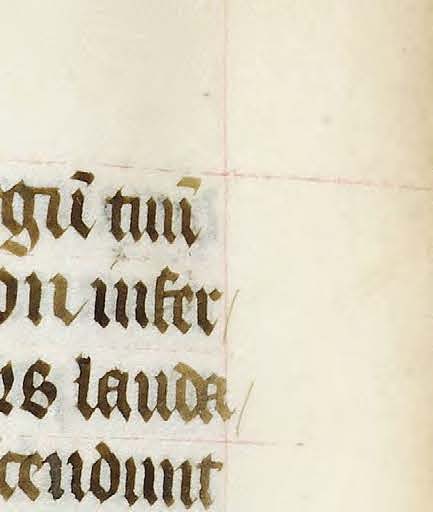 gnū tuū
on infer
es lauda
cendunt